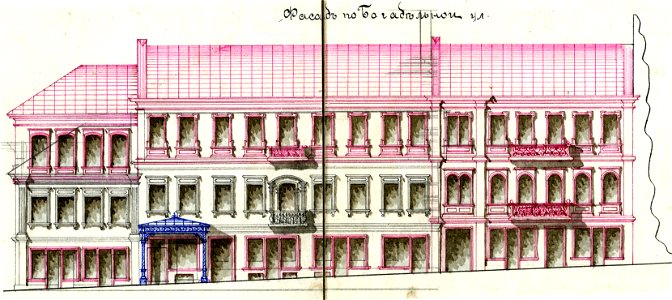 Фасадъ по Богадѣльной ул.